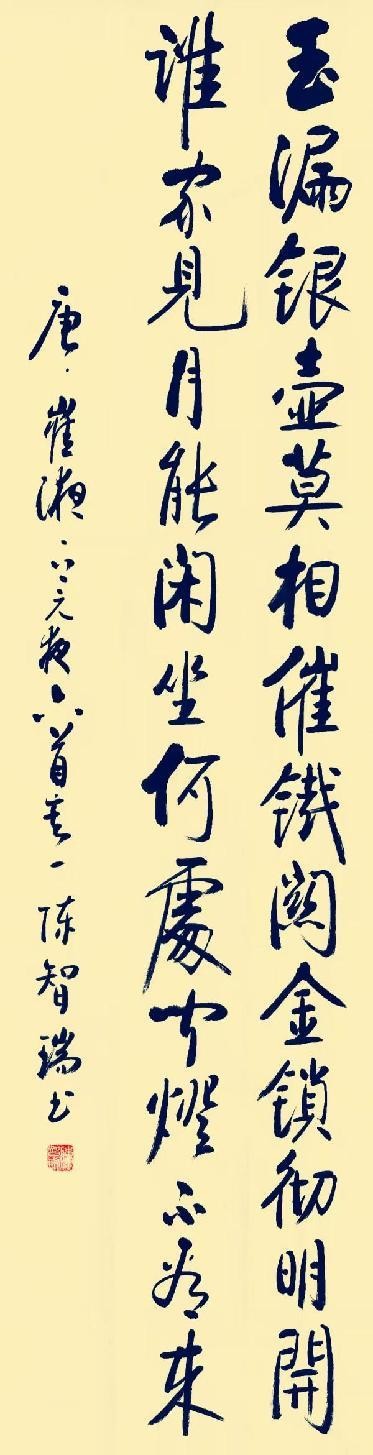 玉漏银壶莫相催铁关金锁彻明開
谁家见月能闲坐何處闻燈不看来
唐·崔·上元夜六首其一陈智瑞书